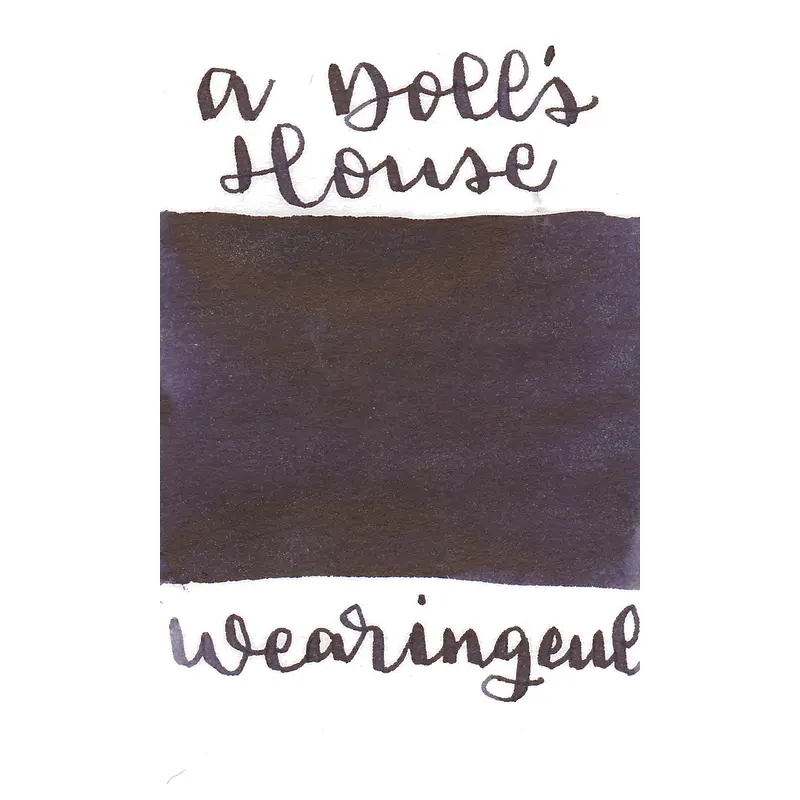 a Doll's
House
Wearingeul